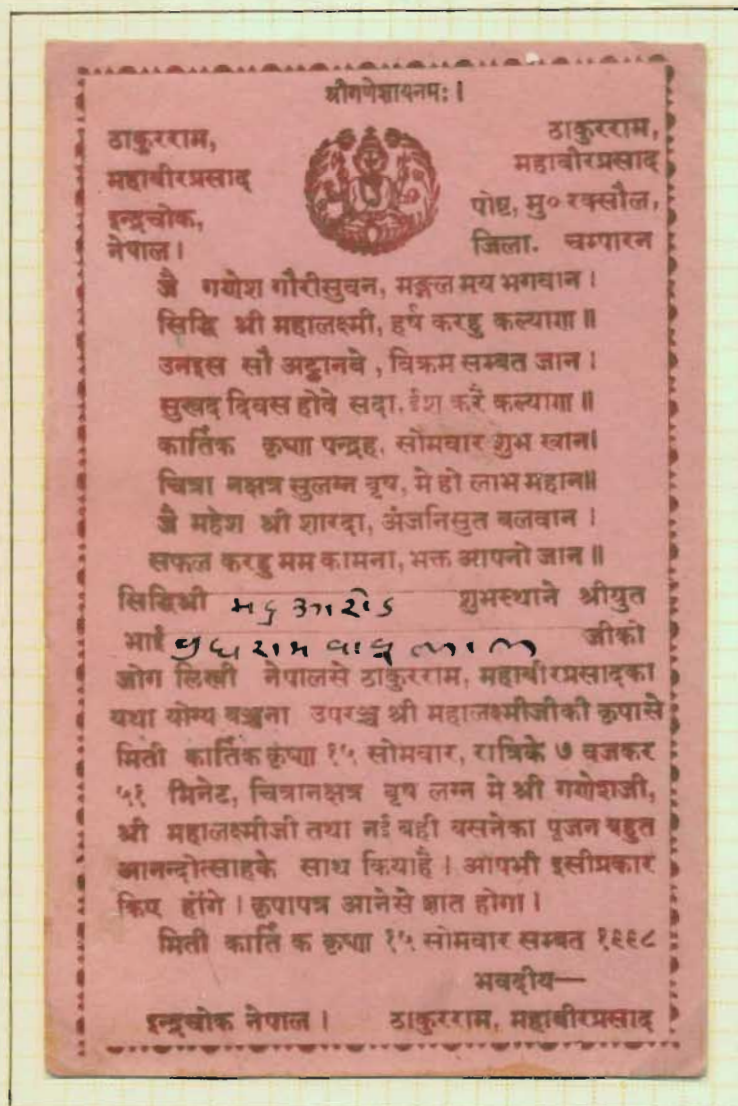 श्रीगणेशायनमः।
ठाकुरराम,
महाबीरप्रसाद
इन्द्रचोक,
नेपाल।
ठाकुरराम,
महाबीरप्रसाद
पोष्ट, मु० रक्सौल,
जिला. चम्पारन
जै गणेश गौरीसुवन, मङ्गल मय भगवान।
सिद्धि श्री महालक्ष्मी, हर्ष करहु कल्याण॥
उनइस सौ अट्ठानवे, विक्रम सम्बत जान।
सुखद दिवस होवे सदा, ईश करै कल्याण॥
कार्तिक कृष्ण पन्द्रह, सोमवार शुभ खान।
चित्रा नक्षत्र सुलग्न वृष, मे हो लाभ महान॥
जै महेश श्री शारदा, अंजनिसुत बलवान।
सफल करहु मम कामना, भक्त आपनो जान॥
सिद्धिश्री शुभस्थाने श्रीयुत
भाई बुधराम बाबु लाल जीको
जोग लिखी नेपालसे ठाकुरराम, महाबीरप्रसादका
यथा योग्य बञ्चना उपरञ्च श्री महालक्ष्मीजीकी कृपासे
मिती कार्तिक कृष्ण १५ सोमवार, रात्रिके ७ बजकर
५१ मिनेट, चित्रानक्षत्र वृष लग्न मे श्री गणेशजी,
श्री महालक्ष्मीजी तथा नई बही वसनेका पूजन बहुत
आनन्दोत्साहके साथ कियाहै। आपभी इसीप्रकार
किए होंगे। कृपापत्र आनेसे ज्ञात होगा।
मिती कार्ति क कृष्ण १५ सोमवार सम्बत १९९८
भवदीय—
इन्द्रचोक नेपाल। ठाकुरराम, महाबीरप्रसाद